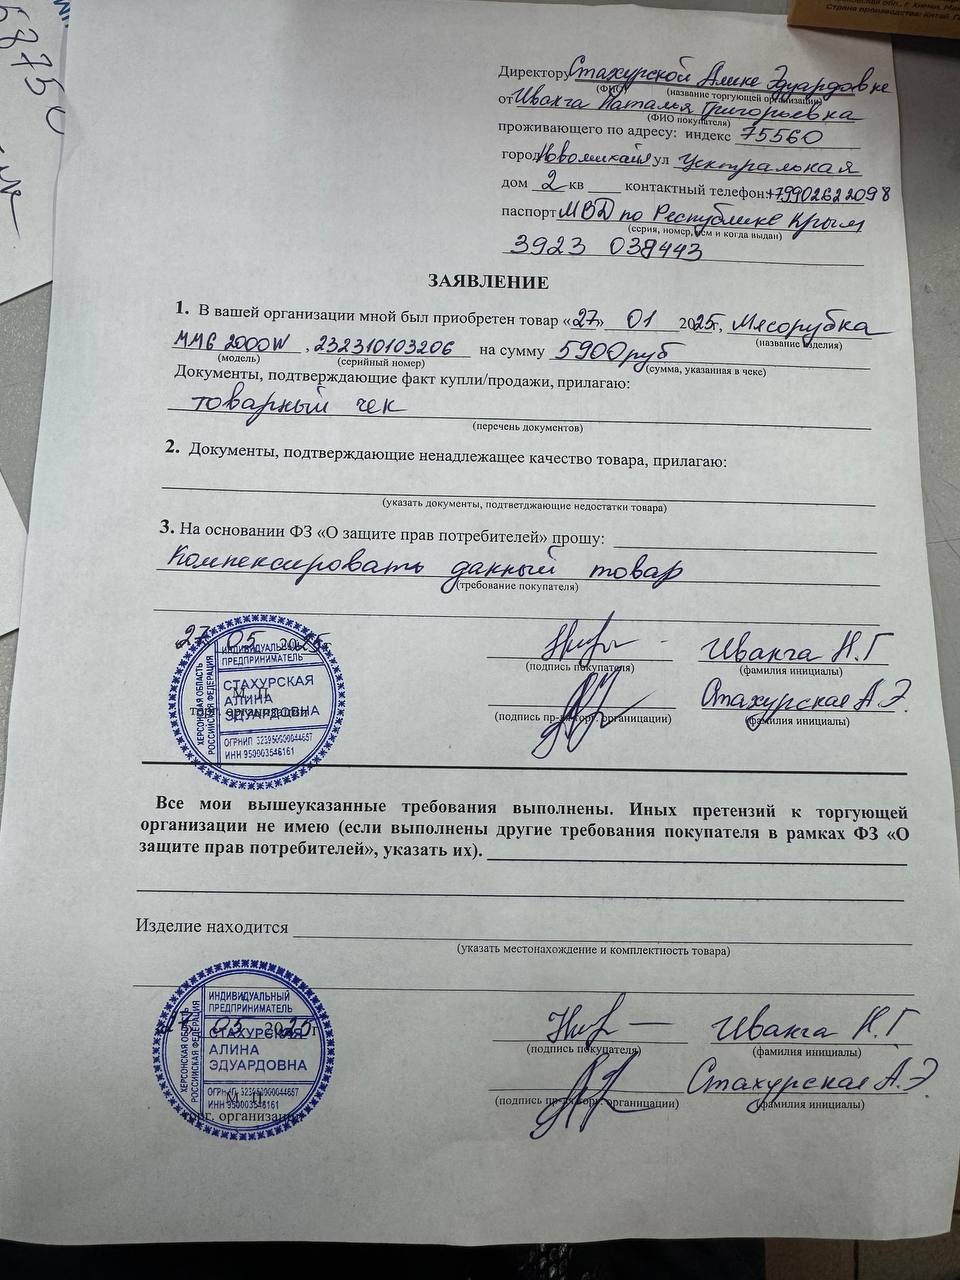 Страна производства: Китай.
58750
Директору Стахурской Алине Эдуардовне
(ФИО) (название торгующей организации)
от Иванга Наталья Григорьевна
(ФИО покупателя)
проживающего по адресу: индекс 75560
город ул Центральная
дом 2 кв контактный телефон: +79902622098
паспорт МВД по Республике Крым
(серия, номер, кем и когда выдан)
3923 038443
ЗАЯВЛЕНИЕ
1. В вашей организации мной был приобретен товар «27» 01 2025г, Мясорубка
(название изделия)
MMG 2000W, 232310103206 на сумму 5900руб
(модель) (серийный номер) (сумма, указанная в чеке)
Документы, подтверждающие факт купли/продажи, прилагаю:
товарный чек
(перечень документов)
2. Документы, подтверждающие ненадлежащее качество товара, прилагаю:
(указать документы, подтветджающие недостатки товара)
3. На основании ФЗ «О защите прав потребителей» прошу:
Компенсировать данный товар
(требование покупателя)
27 05 2025г
Иванга Н.Г
(подпись покупателя) (фамилия инициалы)
Стахурская А.Э.
(подпись пр-ля торг. органицации) (фамилия инициалы)
М. П.
торг. организации
ИНДИВИДУАЛЬНЫЙ
ПРЕДПРИНИМАТЕЛЬ
СТАХУРСКАЯ
АЛИНА
ЭДУАРДОВНА
ОГРНИП 323950000044657
ИНН 950003546161
ХЕРСОНСКАЯ ОБЛАСТЬ
РОССИЙСКАЯ ФЕДЕРАЦИЯ
Все мои вышеуказанные требования выполнены. Иных претензий к торгующей
организации не имею (если выполнены другие требования покупателя в рамках ФЗ «О
защите прав потребителей», указать их).
Изделие находится
(указать местонахождение и комплектность товара)
27 05 2025г
Иванга Н.Г
(подпись покупателя) (фамилия инициалы)
Стахурская А.Э
(подпись пр-ля торг. органицации) (фамилия инициалы)
М. П.
торг. организации
ИНДИВИДУАЛЬНЫЙ
ПРЕДПРИНИМАТЕЛЬ
СТАХУРСКАЯ
АЛИНА
ЭДУАРДОВНА
ОГРНИП 323950000044657
ИНН 950003546161
ХЕРСОНСКАЯ ОБЛАСТЬ
РОССИЙСКАЯ ФЕДЕРАЦИЯ